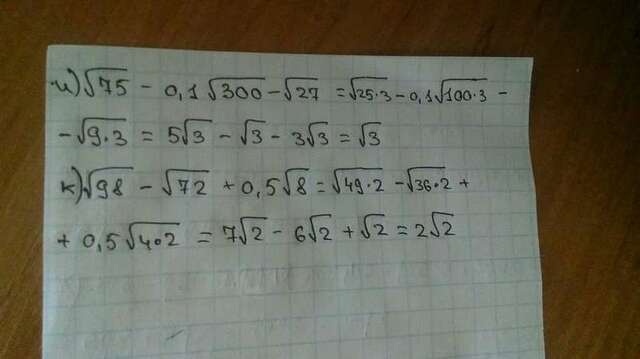 и) √75 - 0,1√300 - √27 = √25·3 - 0,1√100·3 -
- √9·3 = 5√3 - √3 - 3√3 = √3
к) √98 - √72 + 0,5√8 = √49·2 - √36·2 +
+ 0,5√4·2 = 7√2 - 6√2 + √2 = 2√2